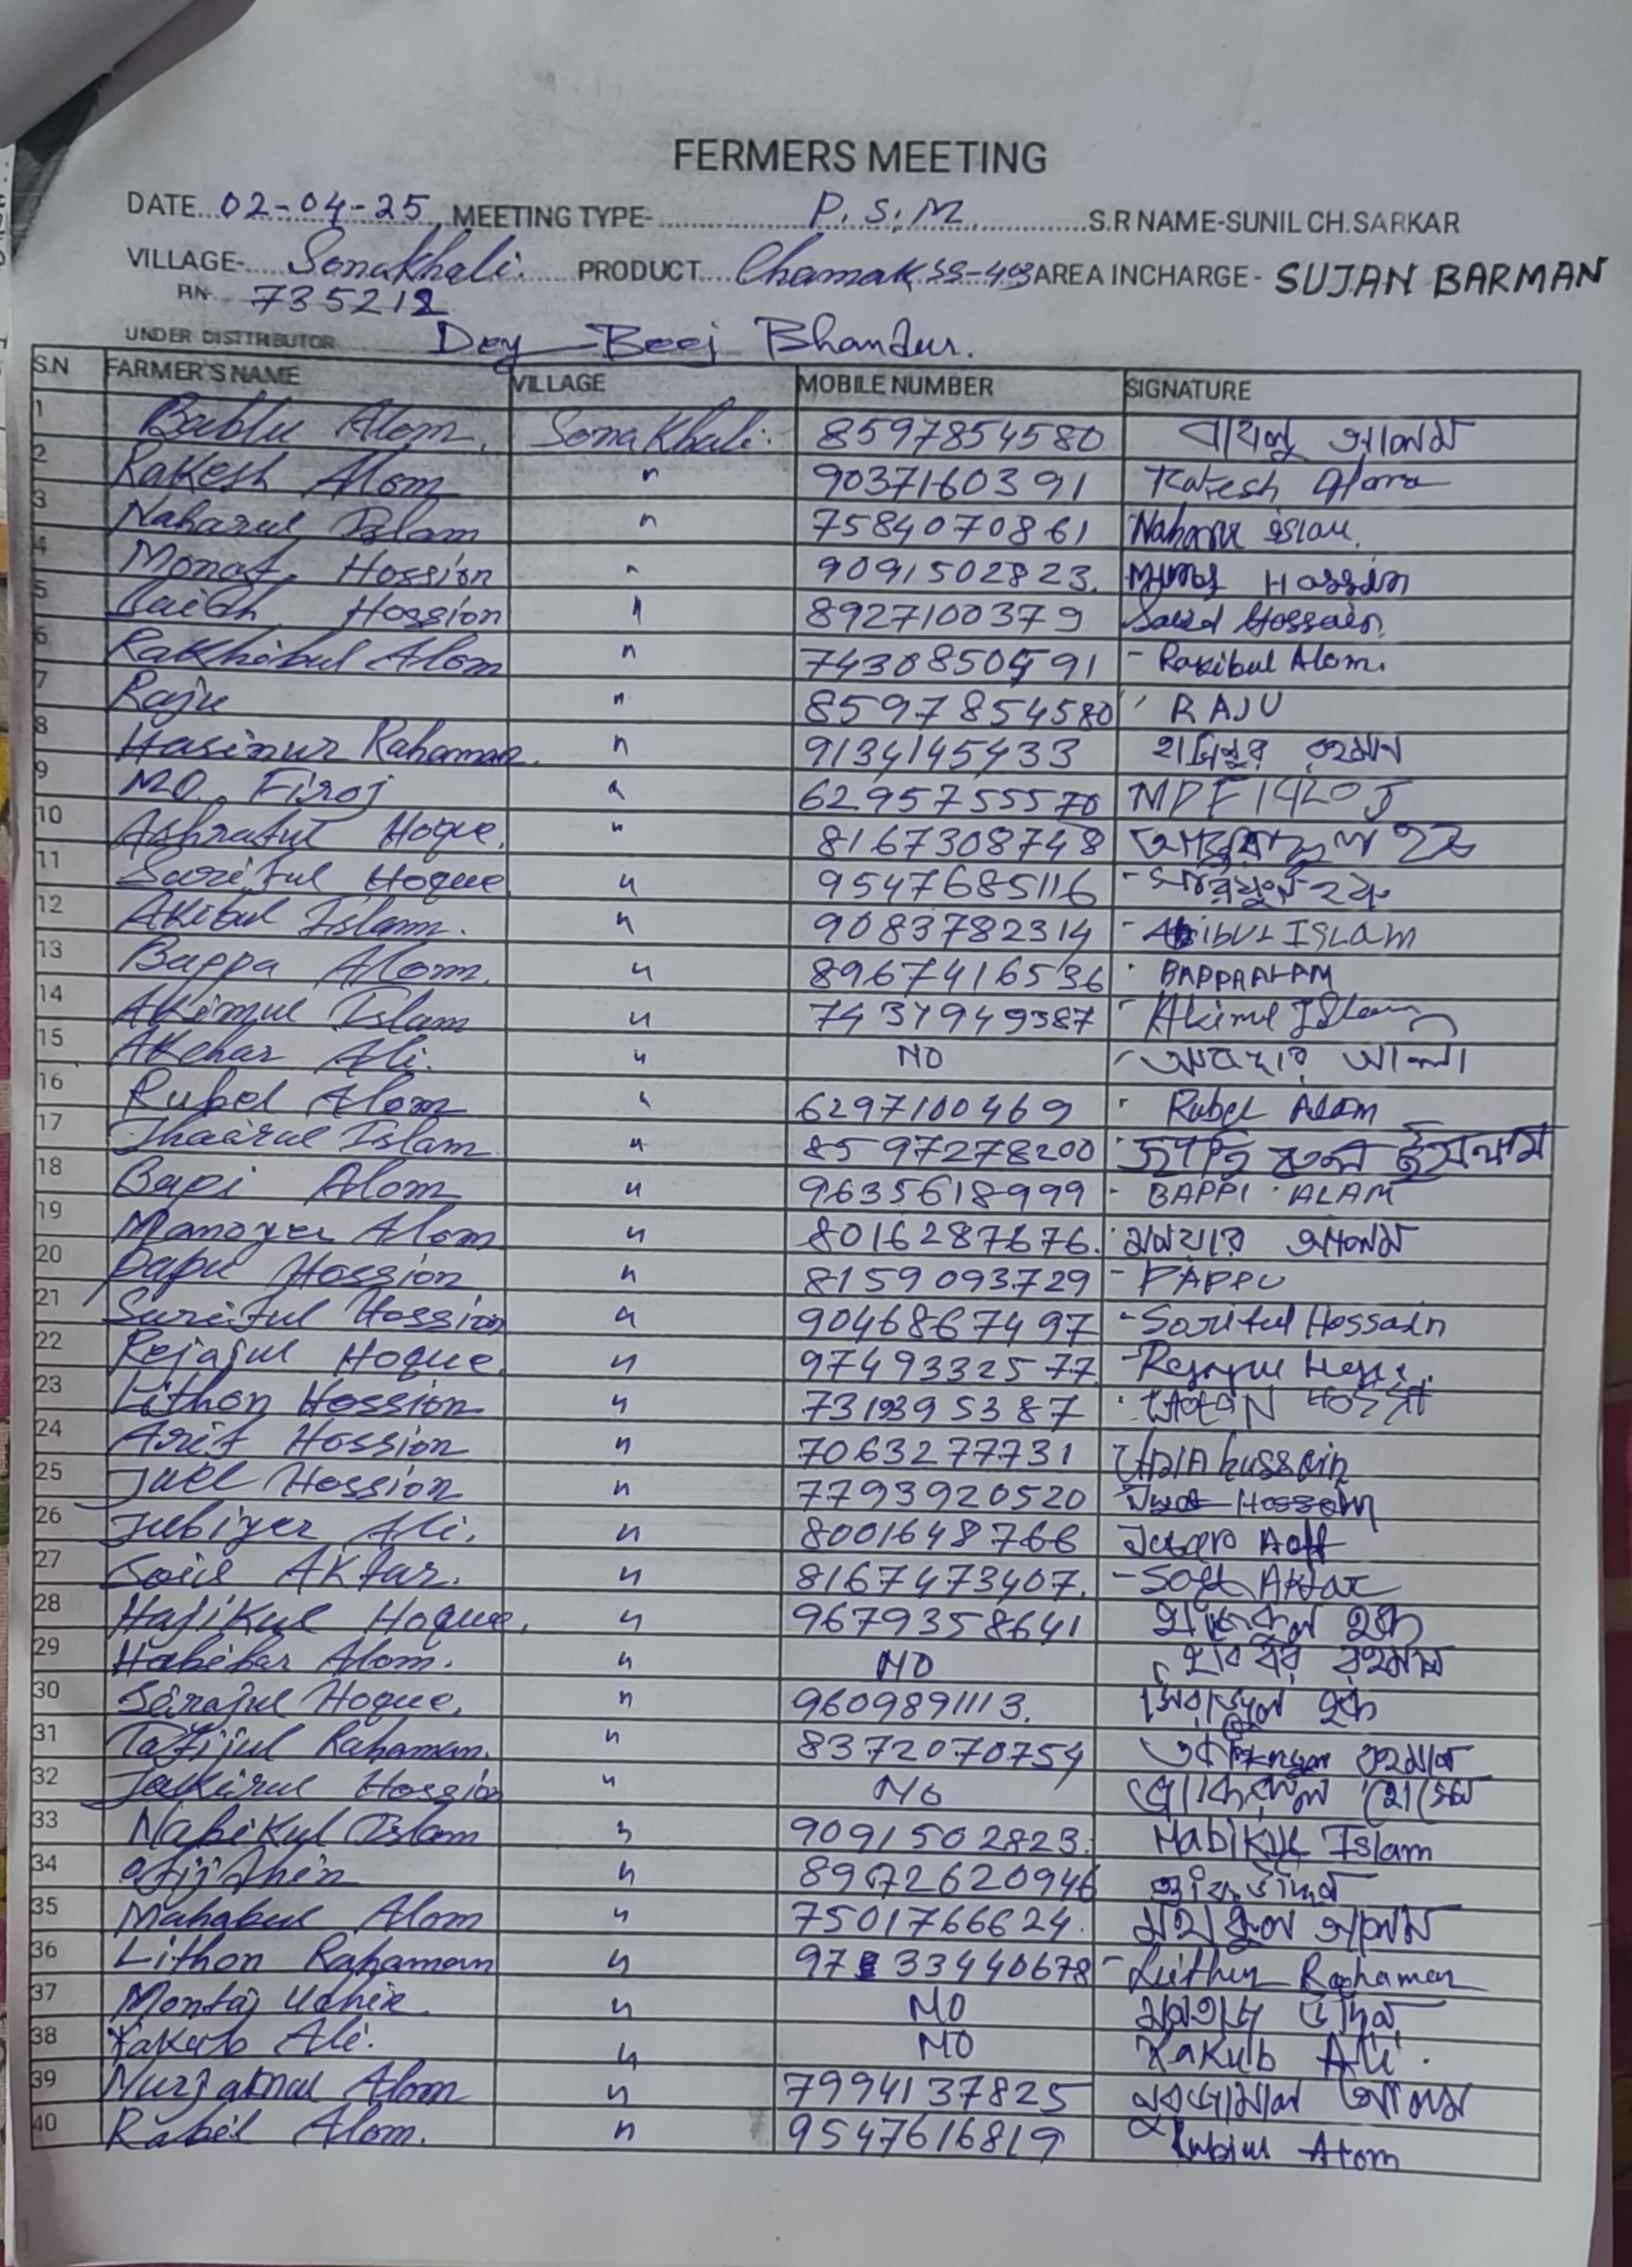 FERMERS MEETING
DATE 02-04-25 MEETING TYPE- P.S.M. S.R NAME-SUNIL CH.SARKAR
VILLAGE- Sonakhali. PRODUCT Chamak SS-43 AREA INCHARGE- SUJAN BARMAN
PIN 735212
UNDER DISTTRIBUTOR Dey Beej Bhandar.
S.N FARMER'S NAME VILLAGE MOBILE NUMBER SIGNATURE
1 Bablu Alom. Sonakhali. 8597854580 বাবলু আলম
2 Rakesh Alom " 9037160391 Rakesh Alom
3 Naharul Islam " 7584070861 Naharul islam.
4 Monaf Hossion " 9091502823. Hossain
5 Saidh Hossion " 8927100379 Said Hossain
6 Rakhibul Alom " 7430850591 - Rakibul Alom.
7 Raju " 8597854580 RAJU
8 Hasinur Rahaman. " 9134145433 হাসিনুর রহমান
9 MD. Firoj " 6295755570
10 Ashraful Hoque. " 8167308748 হক
11 Sariful Hoque " 9547685116 - হক
12 Akibul Islam. " 9083782314 - Akibul ISLAM
13 Bappa Alom. " 8967416536 BAPPA ALAM
14 Akimul Islam " 7437949387 - Akimul Islam
15 Akchar Ali. " NO আলী
16 Rubel Alom " 6297100469 Rubel Alam
17 Jhaarul Islam " 8597278200 ইসলাম
18 Bapi Alom " 9635618999 - BAPPI ALAM
19 Manoyer Alom " 8016287676. মনয়ার আলম
20 Papu Hossion " 8159093729 - PAPPU
21 Suriful Hossion " 9046867497 - Soriful Hossain
22 Rejajul Hoque. " 9749332577 -
23 Lithon Hossion " 7319395387
24 Arif Hossion " 7063277731 hussain
25 Juel Hossion " 7793920520 Hossain
26 Jubiyer Ali. " 8001648766
27 Soil Aktar. " 8167473407. - Aktar
28 Hafikul Hoque. " 9679358641 হক
29 Habibar Alom. " NO রহমান
30 Sirajul Hoque. " 9609891113. সিরাজুল হক
31 Tafijul Rahaman. " 8372070754 রহমান
32 Jakirul Hossion " NO
33 Nabikul Islam " 9091502823. Nabikul Islam
34 "
35 Mahabul Alom " 7501766624. আলম
36 Lithon Rahaman " 9733440678 - Rahaman
37 Montaj Uddin " NO মনতাজ
38 Yakub Ali. " NO Yakub Ali.
39 Nurjamal Alom " 7994137825 নুরজামাল আলম
40 Rabil Alom. " 9547616819 Rubiul Alom